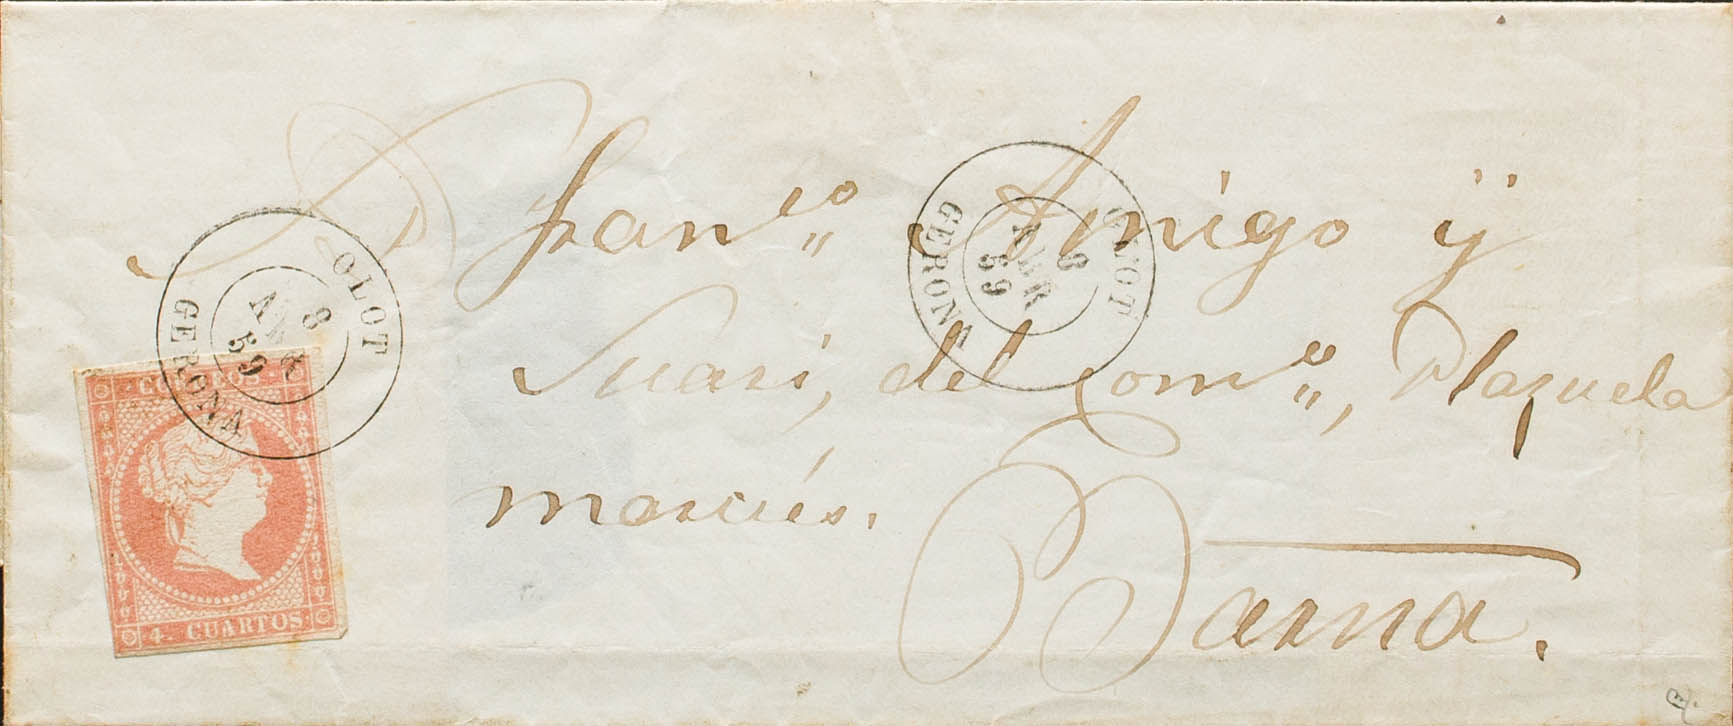 D Franco Amigo ÿ
Suari, del Como, Plazuela
marcús.
Barna.
OLOT
8
ABR
59
GERONA
OLOT
8
ABR
59
GERONA
CORREOS
4. CUARTOS.